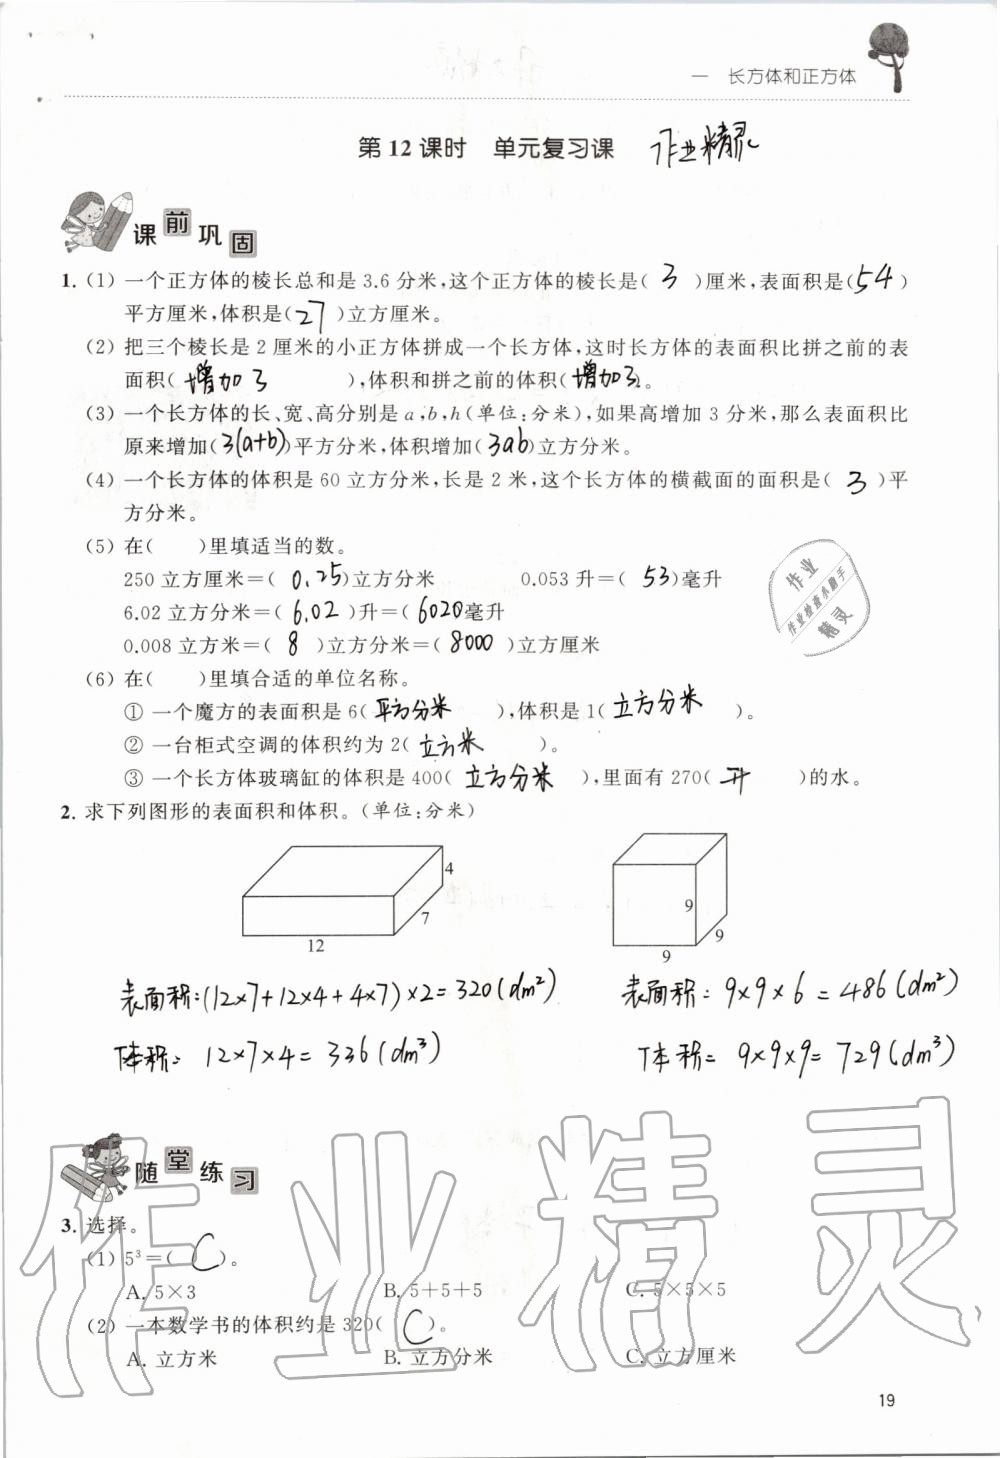 一 长方体和正方体
第12课时 单元复习课 作业精灵
课前巩固
1. (1) 一个正方体的棱长总和是3.6分米,这个正方体的棱长是( 3 )厘米,表面积是(54)
平方厘米,体积是(27)立方厘米。
(2) 把三个棱长是2厘米的小正方体拼成一个长方体,这时长方体的表面积比拼之前的表
面积( 增加了 ),体积和拼之前的体积(增加了)。
(3) 一个长方体的长、宽、高分别是a,b,h(单位:分米),如果高增加3分米,那么表面积比
原来增加(3(a+b))平方分米,体积增加(3ab)立方分米。
(4) 一个长方体的体积是60立方分米,长是2米,这个长方体的横截面的面积是( 3 )平
方分米。
(5) 在( )里填适当的数。
250立方厘米=( 0.25)立方分米 0.053升=( 53)毫升
6.02立方分米=( 6.02 )升=( 6020毫升
0.008立方米=( 8 )立方分米=( 8000 )立方厘米
(6) 在( )里填合适的单位名称。
① 一个魔方的表面积是6( 平方分米 ),体积是1( 立方分米 )。
② 一台柜式空调的体积约为2( 立方米 )。
③ 一个长方体玻璃缸的体积是400( 立方分米 ),里面有270( 升 )的水。
作业
作业检查小助手
精灵
2. 求下列图形的表面积和体积。(单位:分米)
4
7
12
9
9
9
表面积:(12×7+12×4+4×7)×2=320(dm²) 表面积:9×9×6=486(dm²)
体积:12×7×4=336(dm³) 体积=9×9×9=729(dm³)
随堂练习
3. 选择。
(1) 5³=( C )。
A. 5×3 B. 5+5+5 C. 5×5×5
(2) 一本数学书的体积约是320( C )。
A. 立方米 B. 立方分米 C. 立方厘米
作业精灵
19